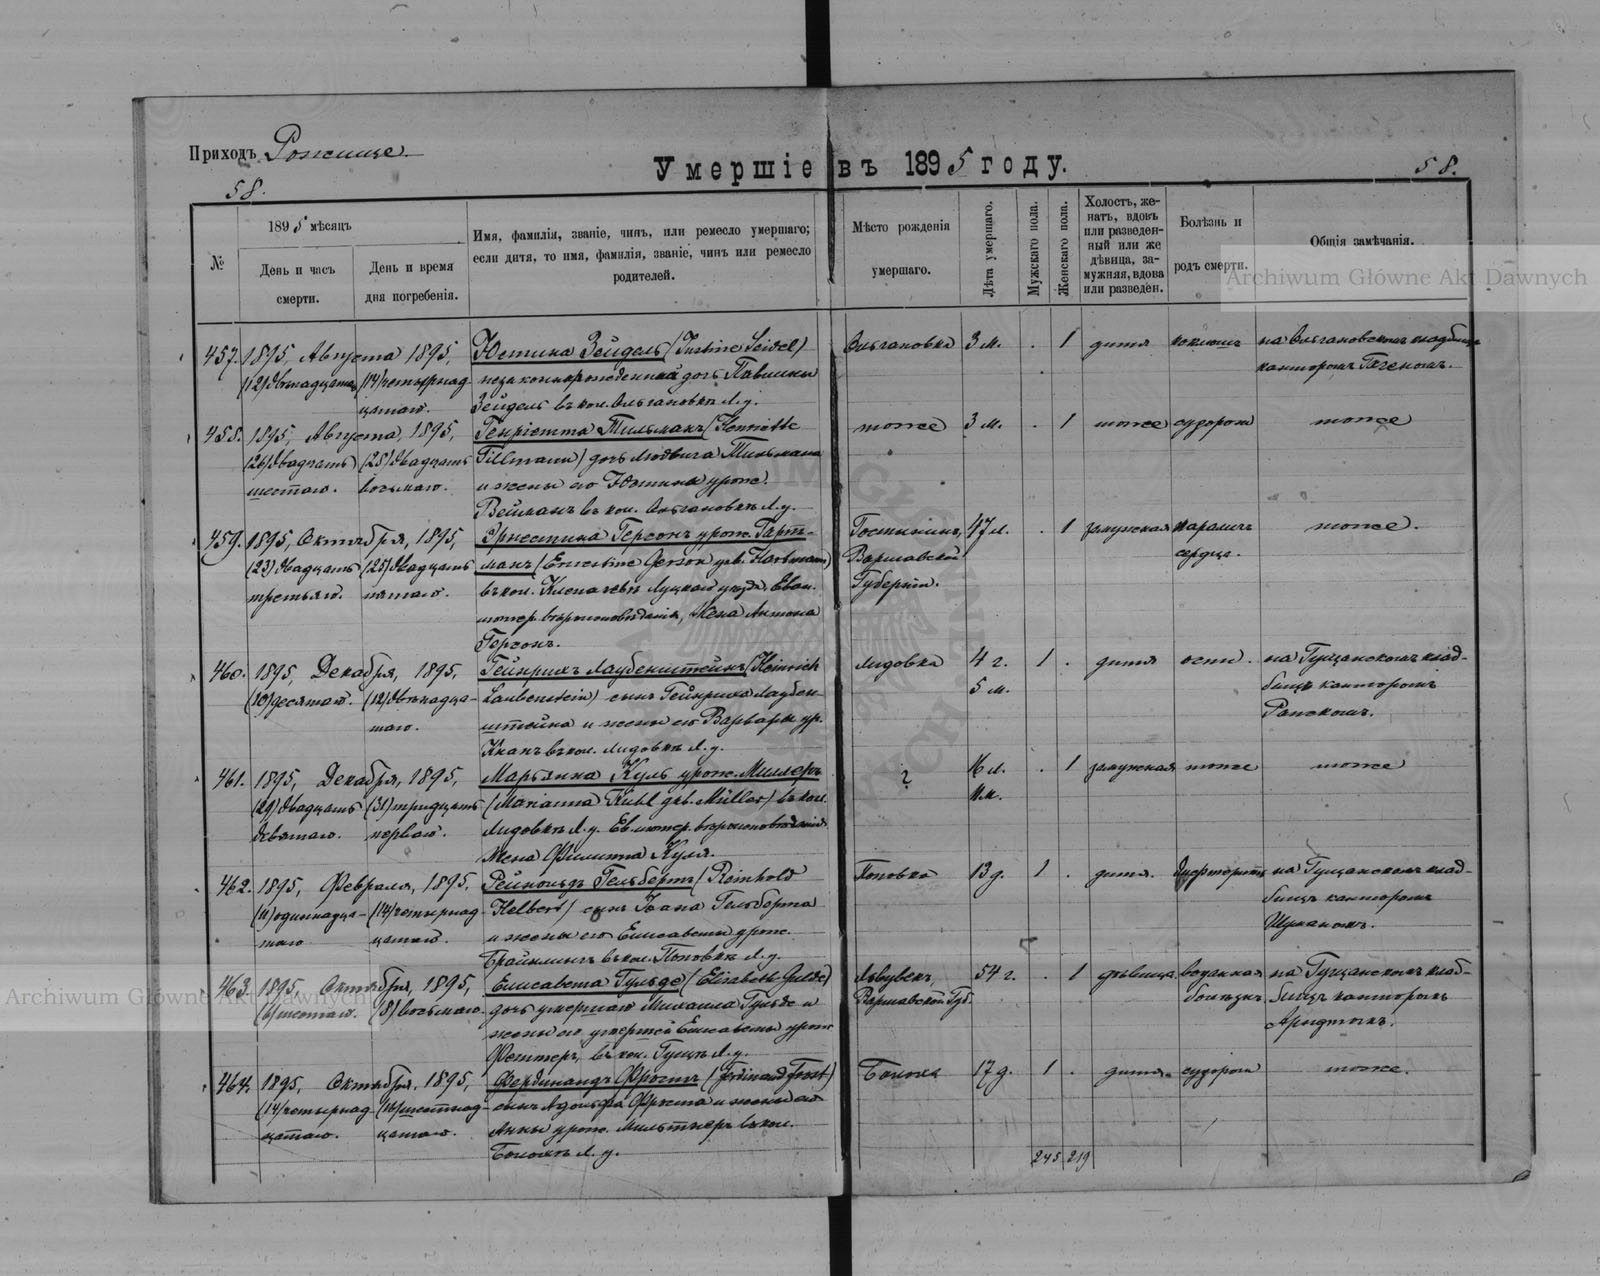 Приходъ Рожище
Умершіе въ 1895 году.
58.
58.
№
1895 мѣсяцъ
День и часъ смерти.
День и время дня погребенія.
Имя, фамилія, званіе, чинъ, или ремесло умершаго;
если дитя, то имя, фамилія, званіе, чинъ или ремесло
родителей.
Мѣсто рожденія
умершаго.
Лѣта умершаго.
Мужскаго пола.
Женскаго пола.
Холостъ, же-
натъ, вдовъ
или разведен-
ный или же
дѣвица, за-
мужняя, вдова
или разведен.
Болѣзнь и
родъ смерти.
Общія замѣчанія.
Archiwum Główne Akt Dawnych
457. 1895, Августа 1895, Юстина Зейдель (Justine Seidel) Ольгановка 3 м. . 1 дитя коклюшъ на Ольгановскомъ кладбищѣ
(12) двѣнадцатаго (14) четырнад- незаконнорожденная дочь Павлины канторомъ
цатаго. Зейдель въ кол. Ольгановкѣ Л. у.
458. 1895, Августа, 1895, Генріетта Тильманъ (Henriette тоже 3 м. . 1 тоже судороги тоже
(26) двадцать (28) двадцать Tillmann) дочь Людвига Тильмана
шестаго. восьмаго. и жены его Юстины урож.
Вейманъ въ кол. Ольгановкѣ Л. у.
459. 1895, Октября, 1895, Эрнестина Герсонъ урож. Гарт- Гостынинъ, 47 л. . 1 замужняя параличъ тоже.
(23) двадцать (25) двадцать манъ (Ernestine Gerson geb. Hartmann) Варшавской сердца.
третьяго. пятаго. въ кол. Луцкаго уѣзда, Еван. Губерніи.
лютер. вѣроисповѣданія, жена Антона
Герсонъ.
460. 1895, Декабря, 1895, Гейнрихъ Лаубенштейнъ (Heinrich Лидовка 4 г. 1 . дитя оспа. на Гущанскомъ клад-
(10) десятаго. (12) двѣнадца- Laubenstein) сынъ Гейнриха Лаубен- 5 м. бищѣ канторомъ
таго. штейна и жены его Варвары ур.
Кнапъ въ кол. Лидовкѣ Л. у.
461. 1895, Декабря, 1895, Марьянна Куль урож. Миллеръ ? 16 л. . 1 замужняя тоже тоже
(29) двадцать (31) тридцать (Marianna Kühl geb. Müller) въ кол. 11 м.
девятаго. перваго. Лидовкѣ Л. у. Ев. лютер. вѣроисповѣданія
жена Филиппа Куля.
462. 1895, Февраля, 1895, Рейнольдъ Гельбертъ (Reinhold Поповка 13 д. 1 . дитя. на Гущанскомъ клад-
(11) одиннадца- (14) четырнад- Helbert) сынъ Іоана Гельберта бищѣ канторомъ
таго цатаго. и жены его Елисаветы урож.
въ кол. Поповкѣ Л. у.
463. 1895, Октября, 1895, Елисавета Гульде (Elisabeth Gulde) 54 г. . 1 дѣвица водяная на Гущанскомъ клад-
(6) шестаго. (8) восьмаго. дочь умершаго Михаила Гульде и Варшавской Губ. болѣзнь. бищѣ канторомъ
жены его умершей Елисаветы урож.
Феттеръ, въ кол. Гущѣ Л. у.
Archiwum Główne Akt Dawnych
464. 1895, Октября, 1895, Фердинандъ Фростъ (Ferdinand Frost) 17 д. 1 . дитя. судороги тоже.
(14) четырнад- (16) шестнад- сынъ Адольфа Фроста и жены его
цатаго. цатаго. Анны урож. въ кол.
Л. у.
245 219